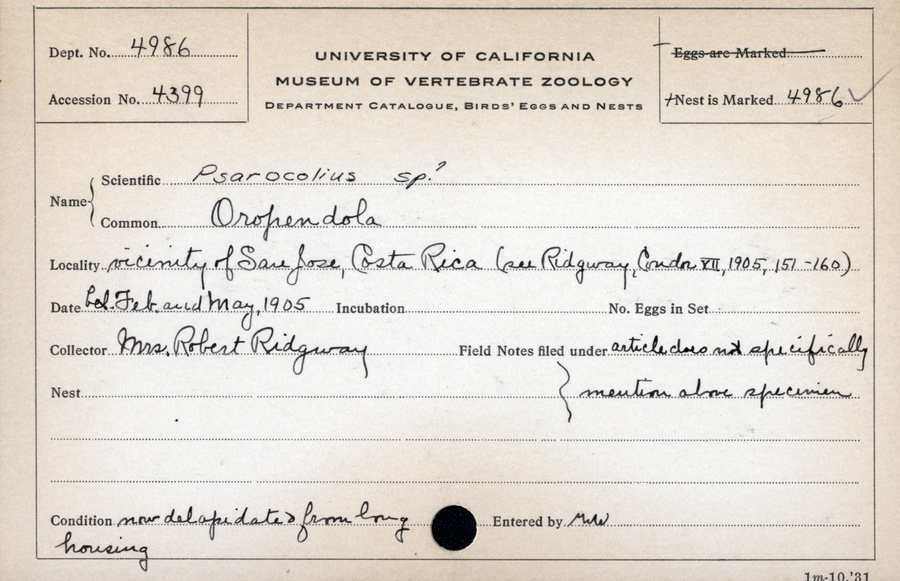 Dept. No. 4986
Accession No. 4399
UNIVERSITY OF CALIFORNIA
MUSEUM OF VERTEBRATE ZOOLOGY
DEPARTMENT CATALOGUE, BIRDS' EGGS AND NESTS
Eggs are Marked
Nest is Marked 4986 ✓
Name { Scientific Psarocolius sp.?
Common Oropendola
Locality vicinity of San Jose, Costa Rica (see Ridgway, Condor VII, 1905, 151-160)
Date bet. Feb. and May, 1905 Incubation No. Eggs in Set
Collector Mrs. Robert Ridgway Field Notes filed under article does not specifically
Nest } mention above specimen
Condition now delapidated from long Entered by
housing
1m-10,'31